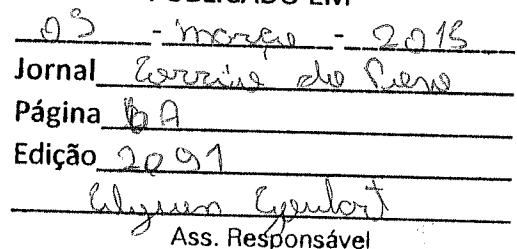 PUBLICADO EM
03 - março - 2015
Jornal Correio do Povo
Página 6A
Edição 2091
Ass. Responsável